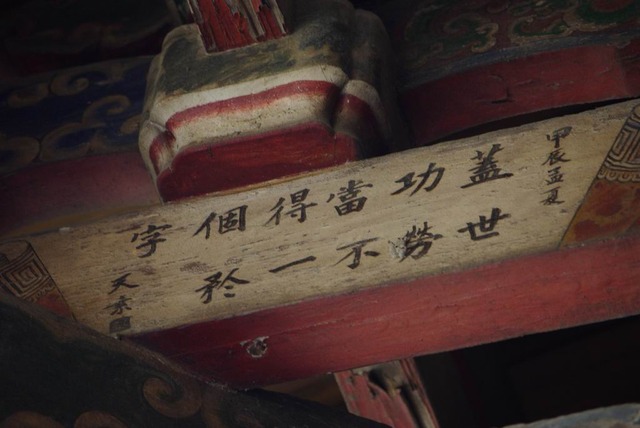 甲辰孟夏
蓋世
功勞
當不
得一
個矜
字